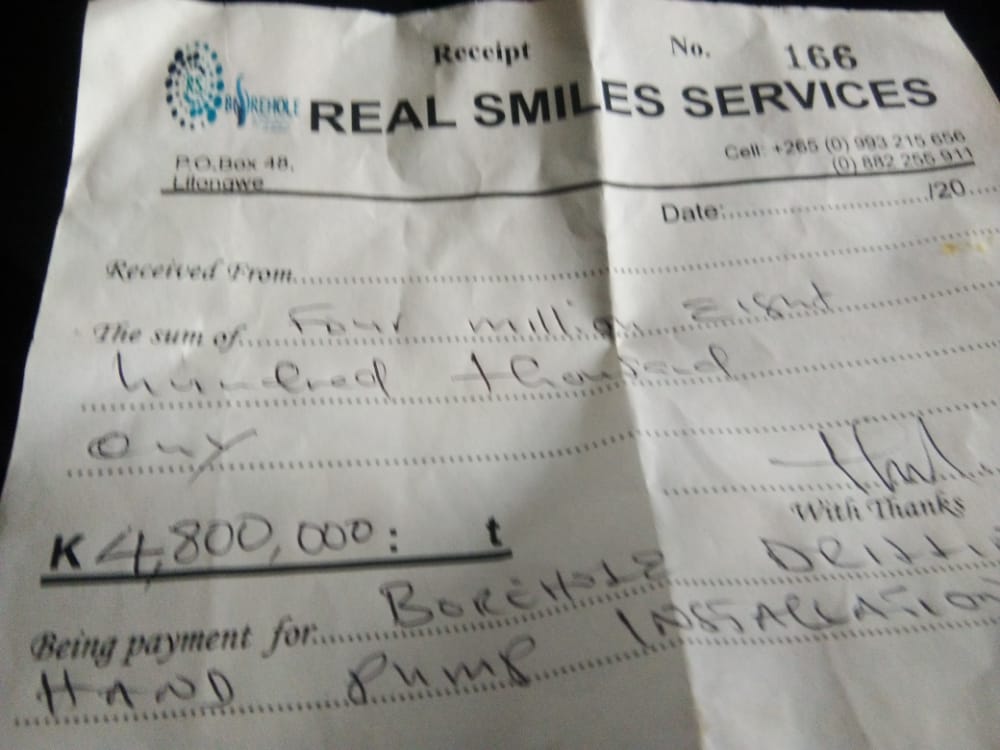 Receipt No. 166
BOREHOLE REAL SMILES SERVICES
P.O.Box 48,
Lilongwe
Cell: +265 (0) 993 215 656
(0) 882 255 911
Date:............................../20....
Received From..........
The sum of.... Four million Eight
hundred thousand
only
With Thanks
K 4,800,000: t
Being payment for.... BOREHOLE
HAND PUMP INSTALLATION